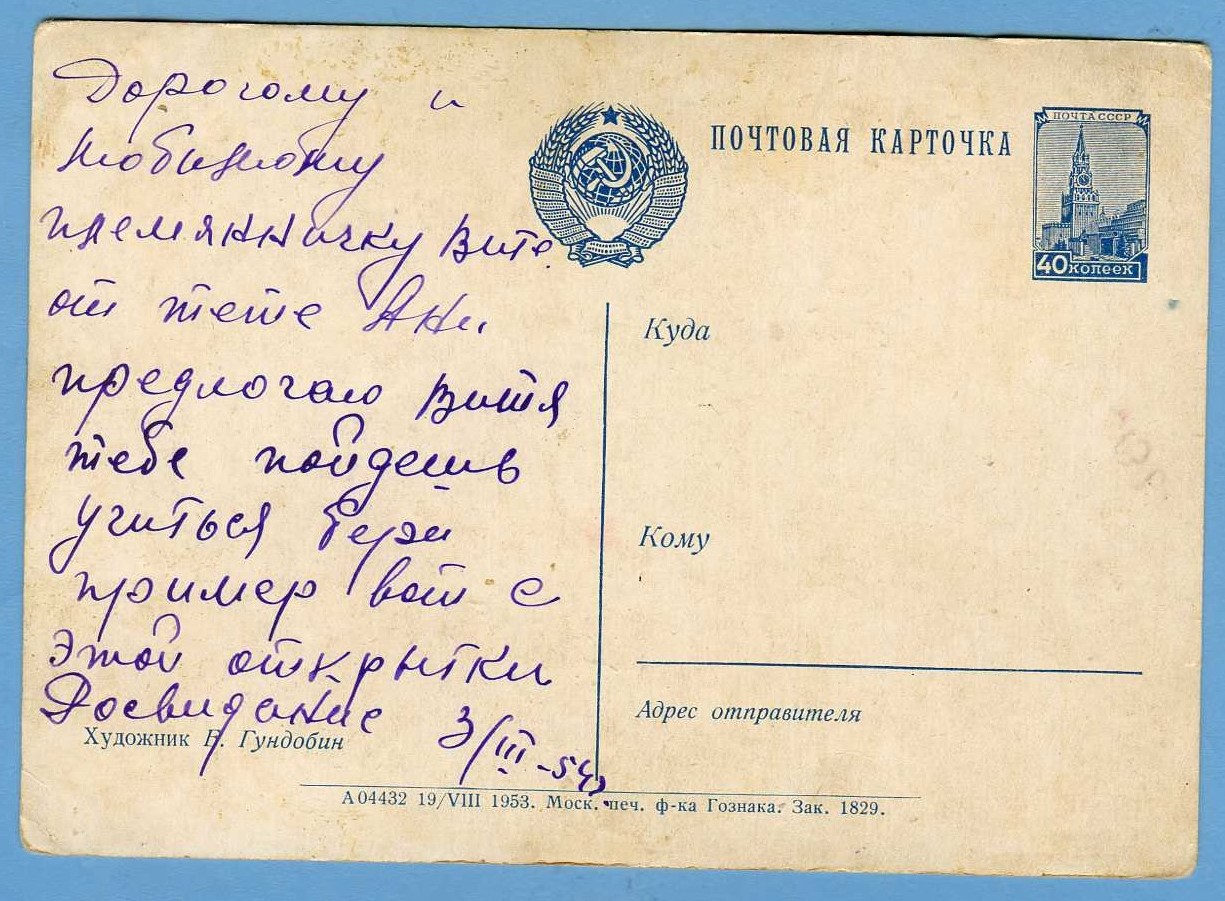 Дорогому и
любимому
племянничку Вите
от тете Ани
предлогаю Витя
тебе пойдешь
учиться бери
пример вот с
этой открытки
Досвидание 3/III-54
ПОЧТОВАЯ КАРТОЧКА
ПОЧТА СССР
40 копеек
Куда
Кому
Адрес отправителя
Художник Е. Гундобин
А 04432 19/VIII 1953. Моск. печ. ф-ка Гознака. Зак. 1829.